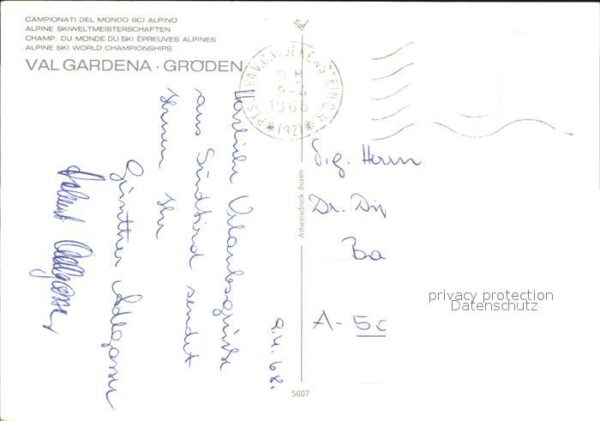 CAMPIONATI DEL MONDO SCI ALPINO
ALPINE SKIWELTMEISTERSCHAFTEN
CHAMP. DU MONDE DU SKI ÉPREUVES ALPINES
ALPINE SKI WORLD CHAMPIONSHIPS
VAL GARDENA · GRÖDEN
9.4.68.
Herzliche Urlaubsgrüße
aus Südtirol sendet
Ihnen Ihr
Günther Adlgasser
Helmut Adlgasser
1968
(92)
Sig. Herrn
Dr. Di
Ba
A - 5c
privacy protection
Datenschutz
Athesiadruck Bozen
5607